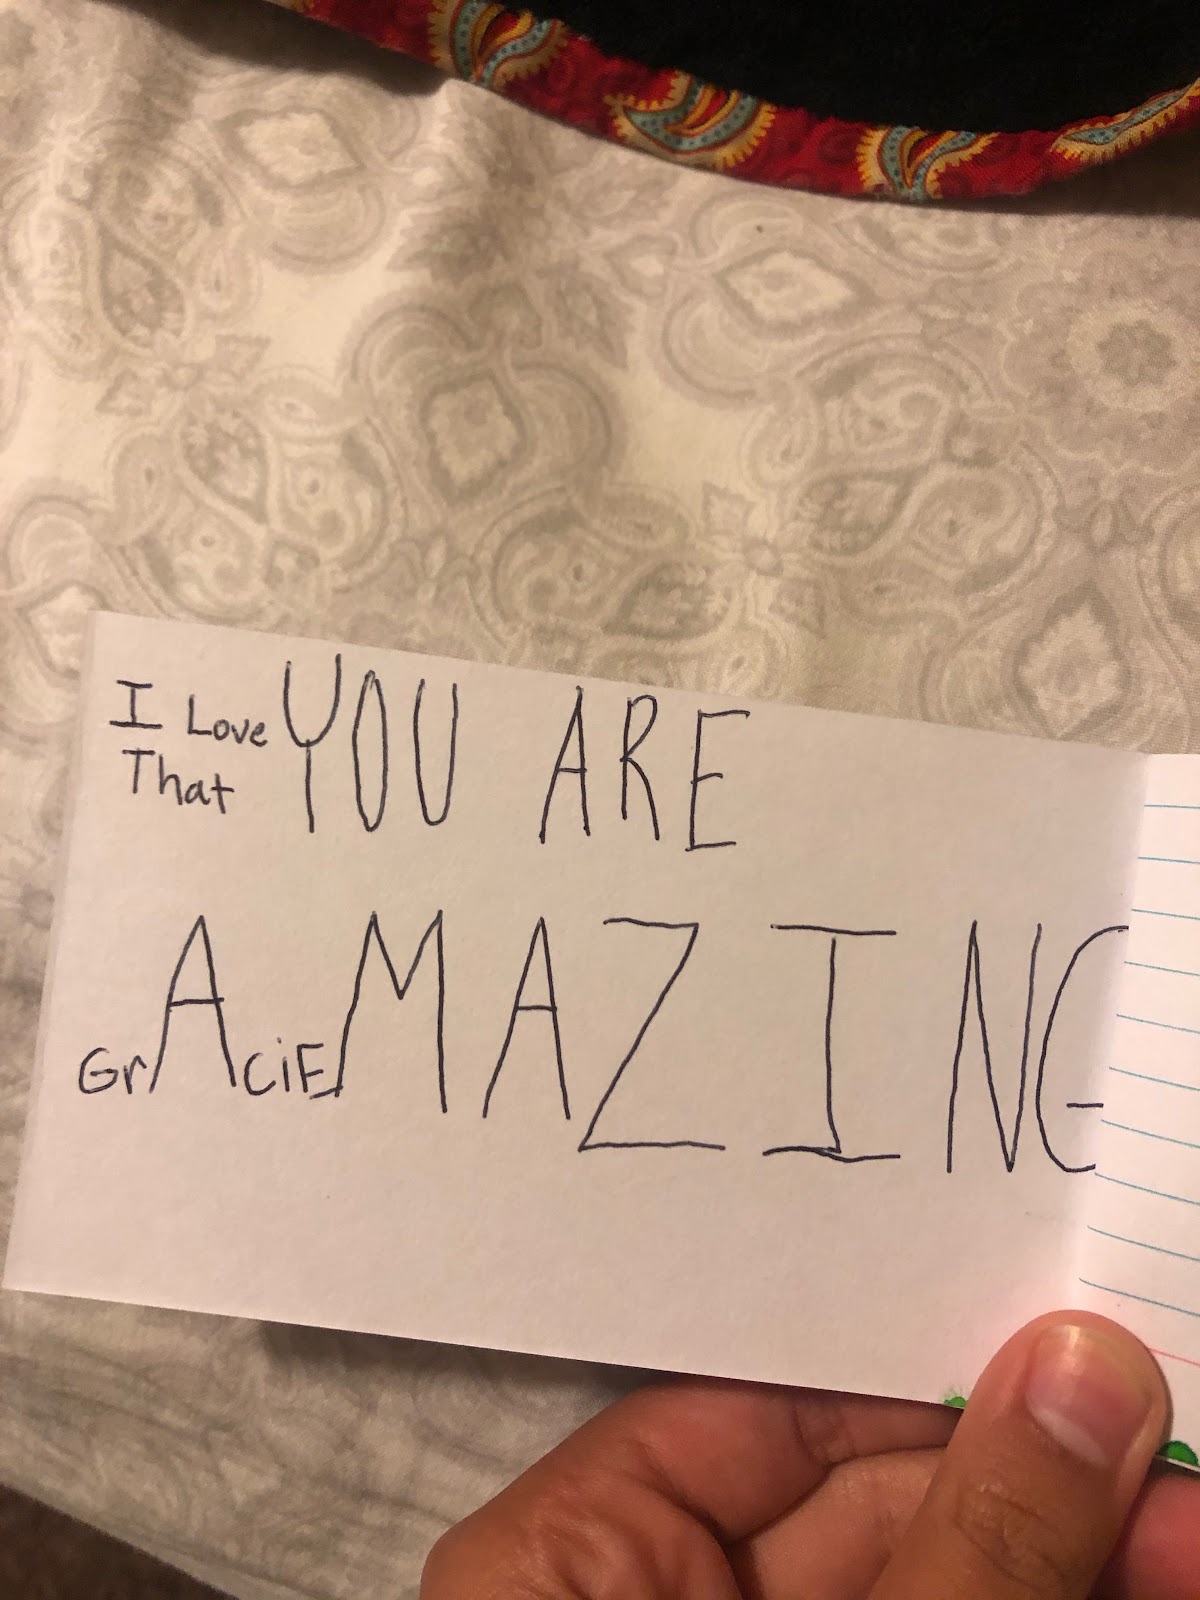 I Love YOU ARE
That
GrAciE MAZING